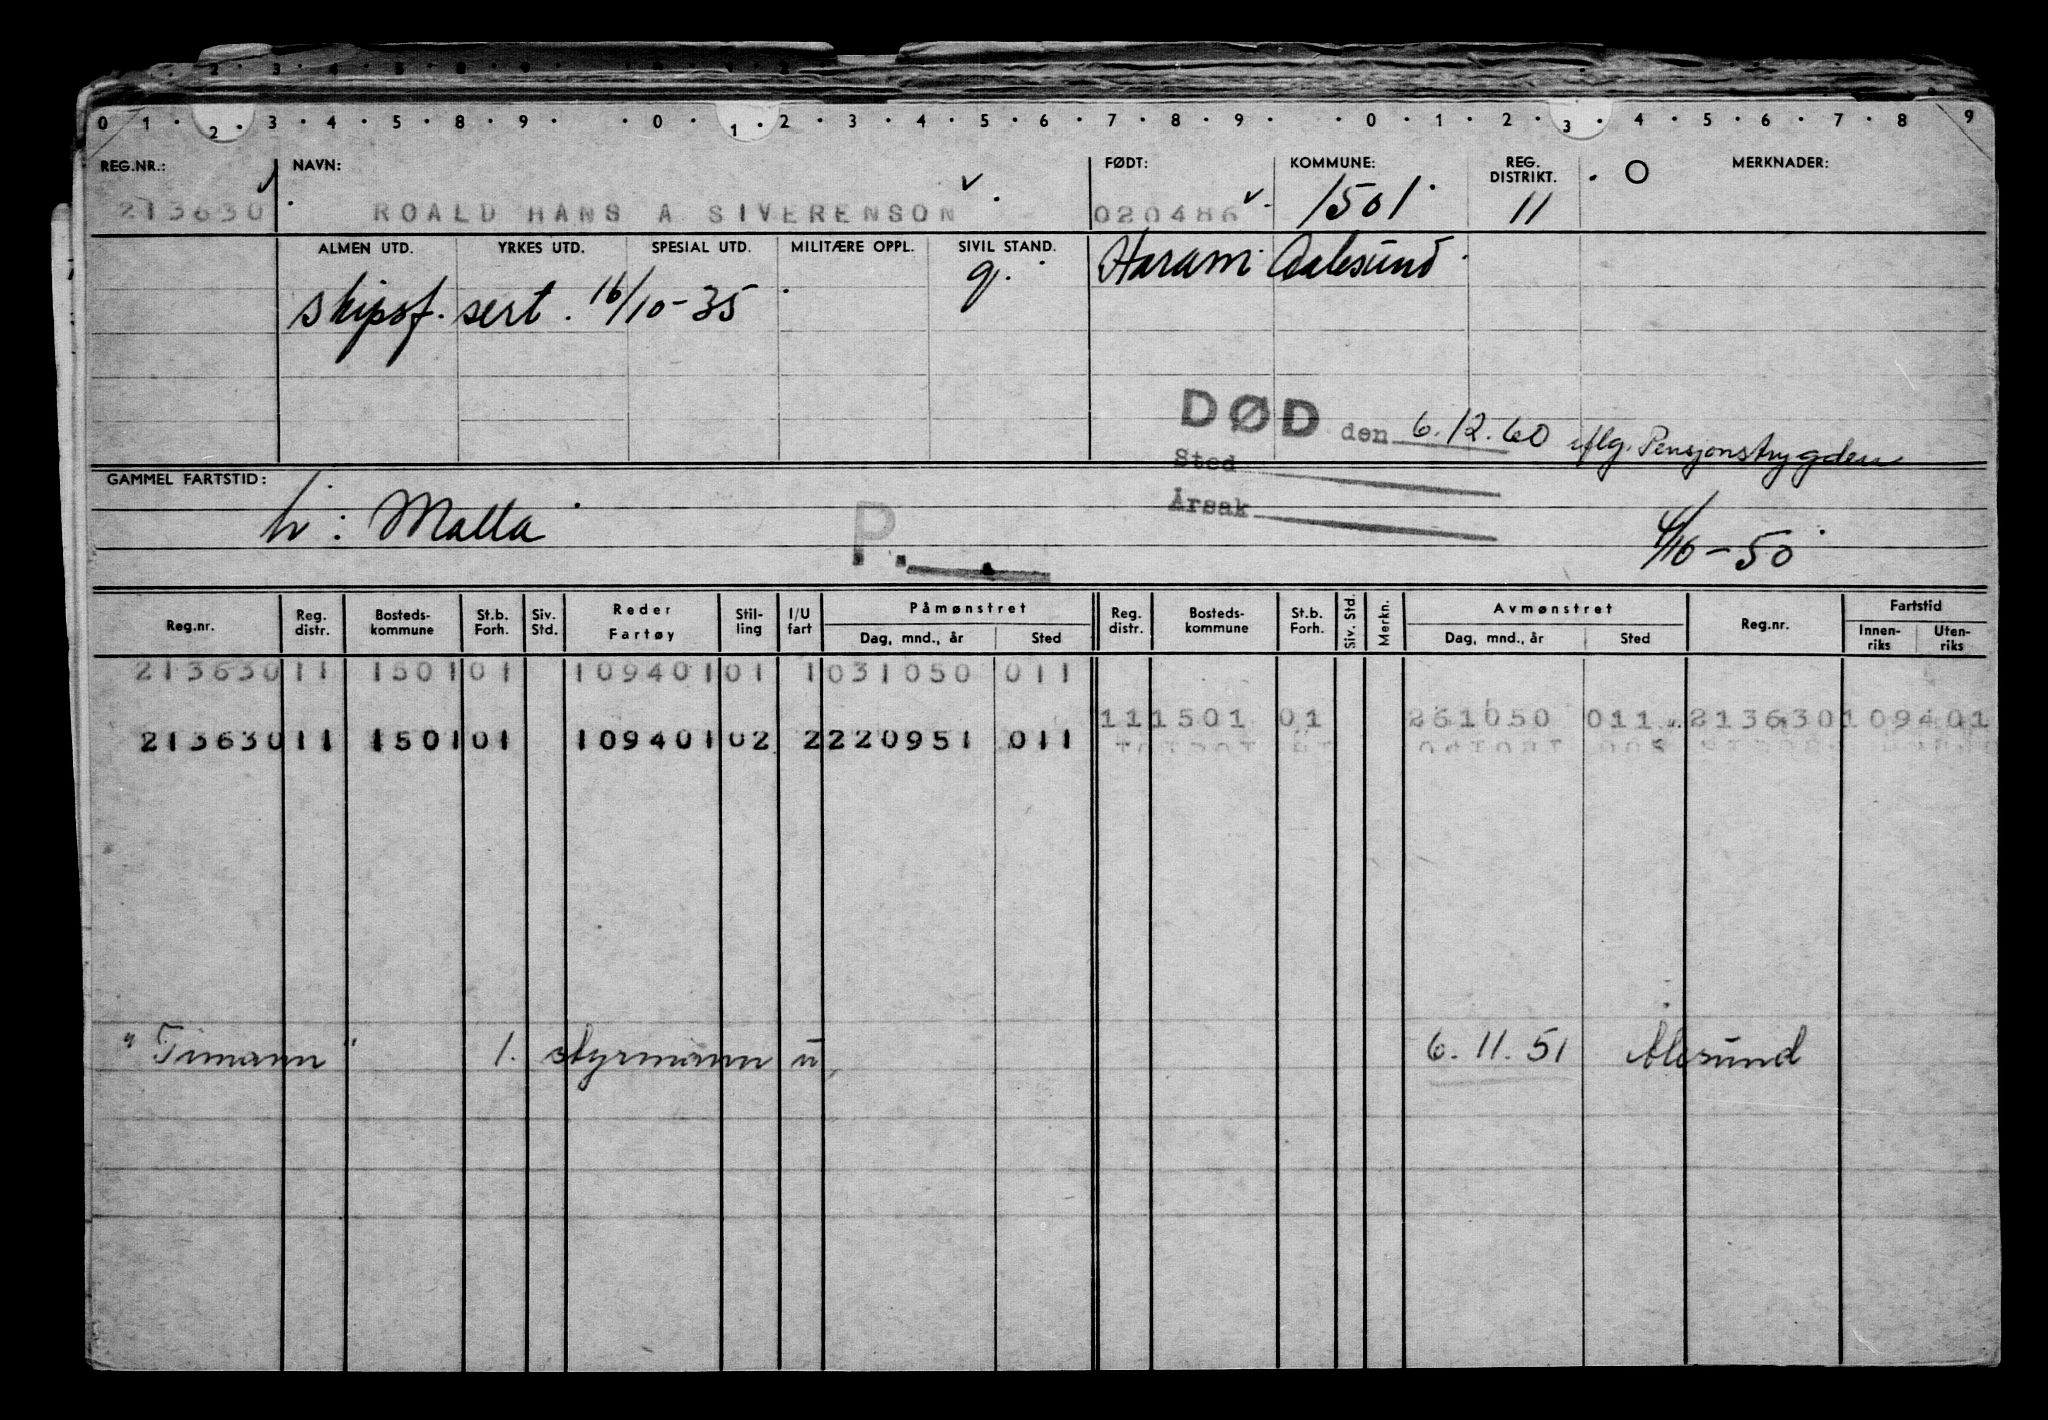 2 3 4 5 8 9 0 1 2
0 1 2 3 4 5 8 9 0 1 2 3 4 5 6 7 8 9 0 1 2 3 4 5 6 7 8 9
REG.NR.: NAVN: FØDT: KOMMUNE: REG. DISTRIKT. MERKNADER:
213630 ROALD HANS A SIVERENSON 020486 1501 11
ALMEN UTD. YRKES UTD. SPESIAL UTD. MILITÆRE OPPL. SIVIL STAND. Haram Aalesund
skipsf. sert. 16/10-35 g.
DØD den 6.12.60 iflg. Pensjonstrygden
Sted
GAMMEL FARTSTID:
h: Malla P. Årsak
4/10-50
Reg.nr. Reg. distr. Bosteds-kommune St.b. Forh. Siv. Std. Reder Fartøy Stil-ling I/U fart Påmønstret Dag, mnd., år Sted Reg. distr. Bosteds-kommune St.b. Forh. Siv. Std. Merkn. Avmønstret Dag, mnd., år Sted Reg.nr. Fartstid Innen-riks Uten-riks
213630 11 1501 01 109401 01 1 031050 011
11 1501 01 261050 011 213630 109401
213630 11 1501 01 109401 02 2 220951 011
"Timann" 1. styrmann u 6.11.51 Ålesund